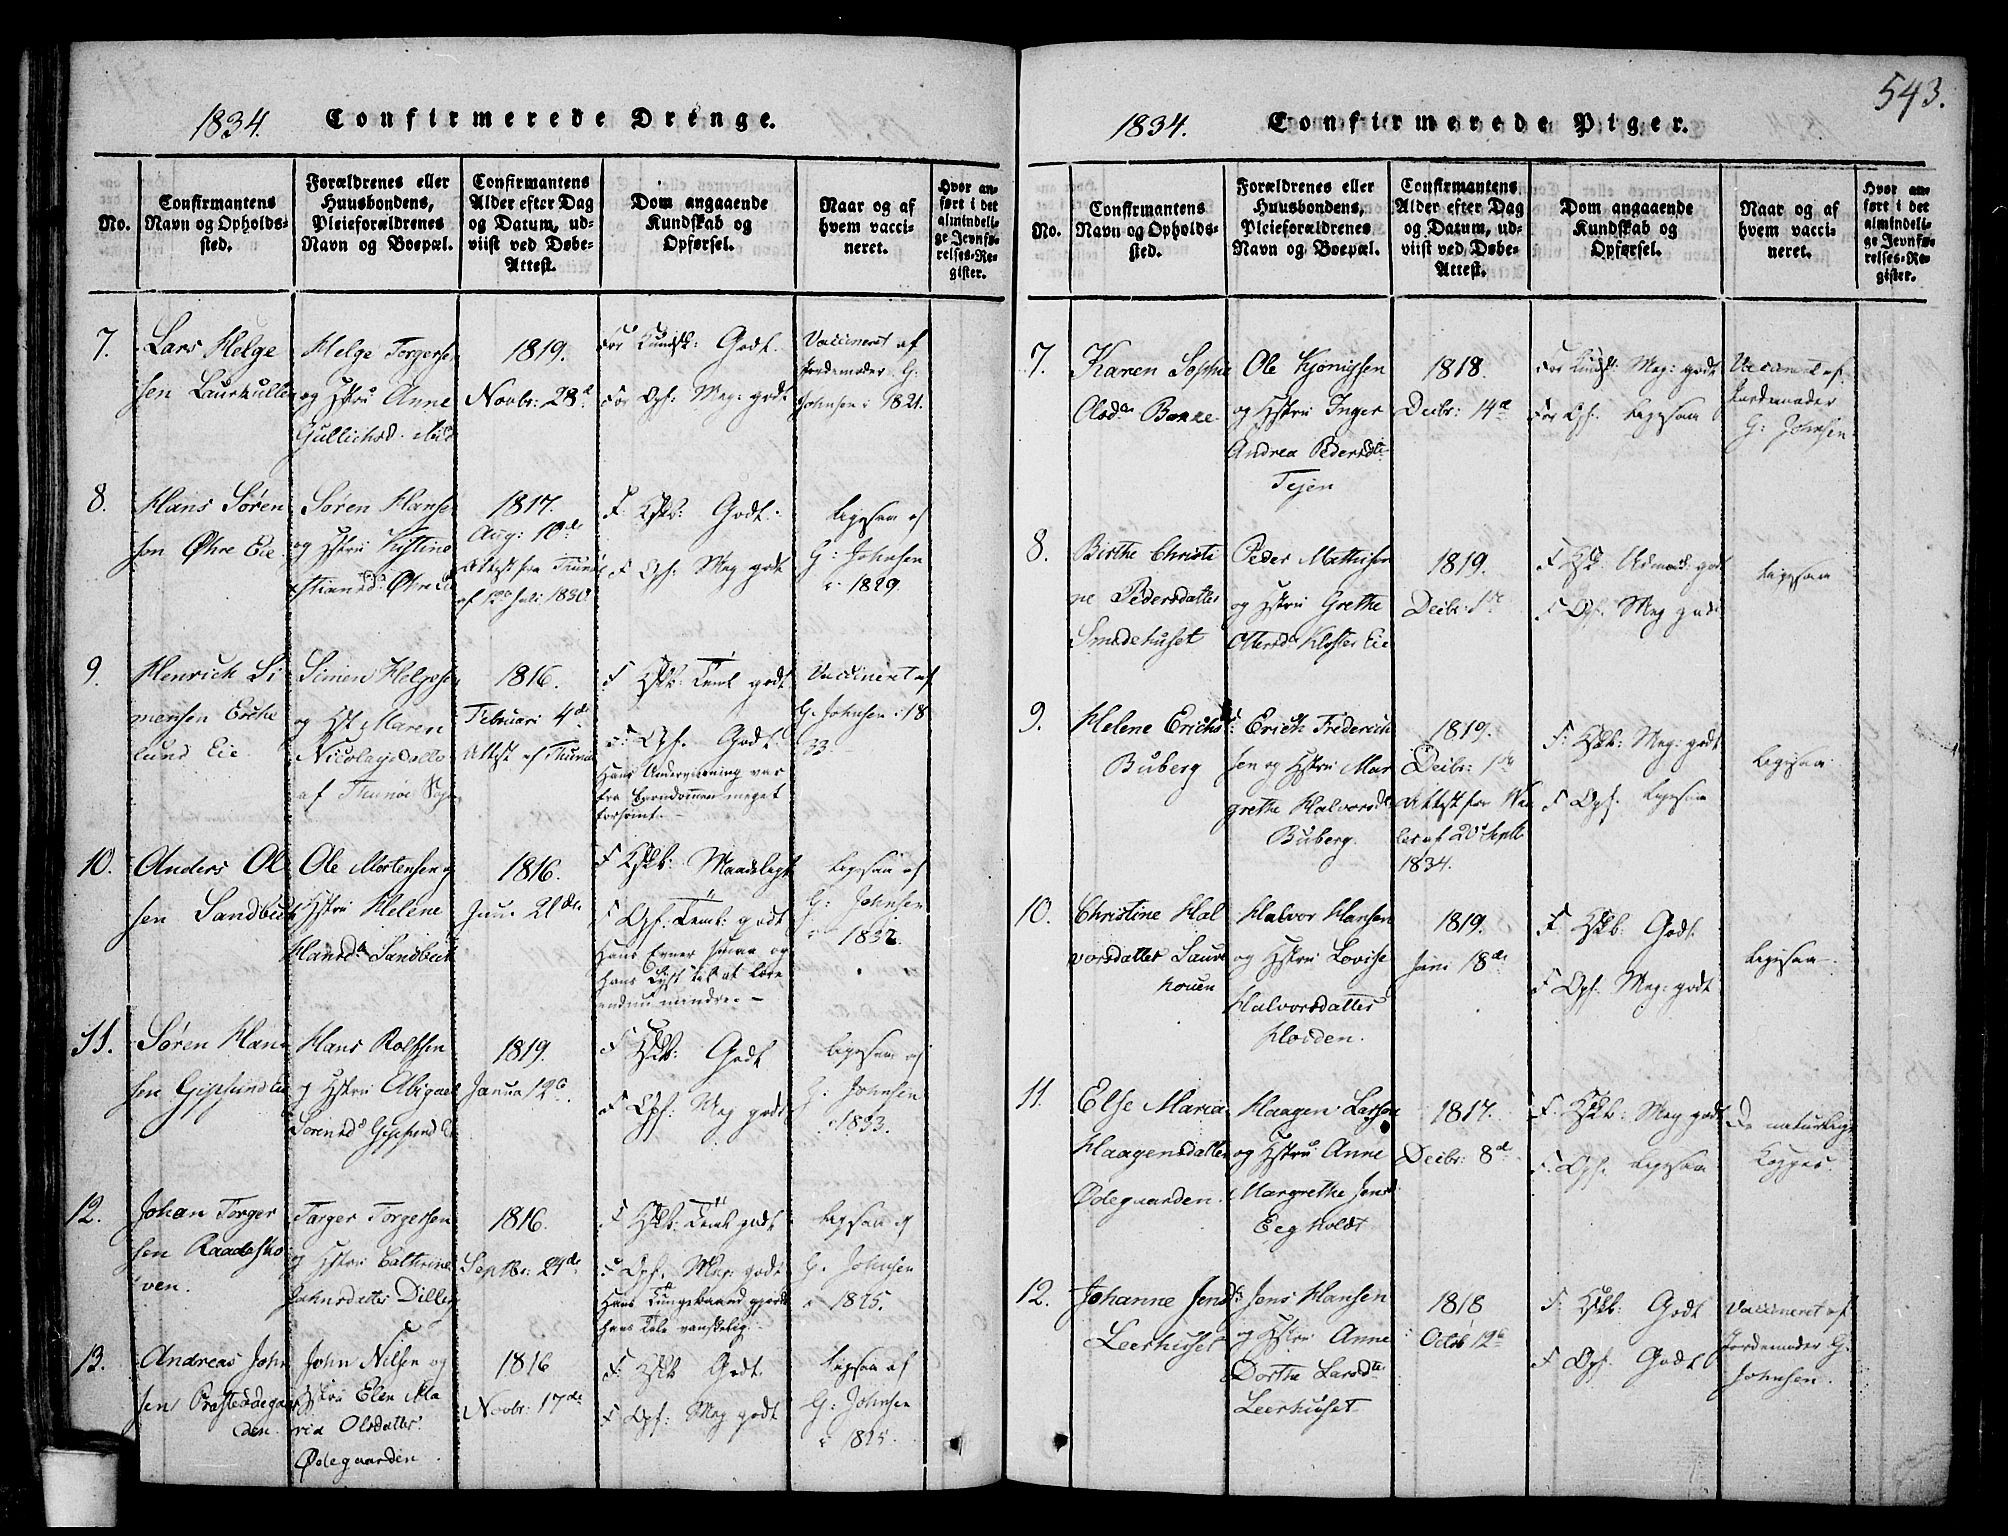 1834. Confirmerede Drenge.
No.
Confirmantens
Navn og Opholds-
sted.
Forældrenes eller
Huusbondens,
Pleieforældrenes
Navn og Boepæl.
Confirmantens
Alder efter Dag
og Datum, ud-
viist ved Døbe-
Attest.
Dom angaaende
Kundskab og
Opførsel.
Naar og af
hvem vacci-
neret.
Hvor an-
ført i det
almindeli-
ge Jevnfø-
relses-Re-
gister.
7.
Lars Helge
sen Laurkullen
Helge Torgersen
og Hstru Anne
Gullichsd.
1819.
Novbr: 28d
For Kundsk: Godt.
For Opf: Meg: godt
Vaccineret af
Jordemoder G:
Johnsen i 1821.
8.
Hans Søren
sen Øhre Eie
Søren Hanse
og Hstru Kistine
Øhre
1817.
Aug: 10de
Attest fra
af Juli 1830.
F. Kskb: Godt.
F Opf: Meg godt
ligesaa af
G: Johnsen
i 1829.
9.
Henrich Si
mensen Esche
lund Eie
Simen Helgesen
og Hst Maren
Nicolaysdatte
af Thunøe Sogn
1816.
Februari 4de
Attest af Thunøe
F Kskb: Teml godt
F: Opf. Godt.
Hans Underviisning var
fra Barndommen meget
forsømt.
Vaccineret af
G. Johnsen i 18
33
10.
Anders Ol
sen Sandbech
Ole Mortensen og
Hstru Helene
Hansda Sandbech
1816.
Juni 21de
F Kskb: Maadeligt
F Opf: Teml: godt
Hans Evner smaa og
hans Lyst til at lære
endnu mindre. –
ligesaa af
G: Johnsen
i 1832.
11.
Søren Han
sen Gipslund Eie
Hans Rolfsen
og Hstru Abigael
Sørensd. Gipslund
1819.
Janua 12te
F Kskb: Godt
F Opf: Meg godt
ligesaa af
G. Johnsen
i 1833.
12.
Johan Torger
sen Raadesko
ven.
Torger Torgersen
og Hstru Cathrine
Johnsdatter Dilleg
1816.
Septbr: 24de
F Kskb: Teml godt
F Opf. Meg: godt
Hans Tungebaand gjorde
hans Tale vanskelig.
ligesaa af
G. Johnsen
i 1825.
13.
Andreas John
sen Præsteødegaar
den.
John Nilsen og
Hstru Elen Ma
ria Olsdatter
Ødegaarden.
1816
Novbr: 17de
F: Kskb Godt.
F Opf: Meg godt
ligesaa af
G: Johnsen
i 1825.
543.
1834. Confirmerede Piger.
No.
Confirmantens
Navn og Opholds-
sted.
Forældrenes eller
Huusbondens,
Pleieforældrenes
Navn og Boepæl.
Confirmantens
Alder efter Dag
og Datum, ud-
viist ved Døbe-
Attest.
Dom angaaende
Kundskab og
Opførsel.
Naar og af
hvem vacci-
neret.
Hvor an-
ført i det
almindeli-
ge Jevnfø-
relses-Re-
gister.
7.
Karen Sophie
Olsda Bakke
Ole Kjønigsen
og Hstru Inger
Andrea Pedersdtr
Tejen
1818.
Decbr: 14de
For Kundsk: Meg: godt
For Opf. ligesaa
Vaccineret af
Jordemoder
G: Johnsen.
8.
Birthe Christi
ne Pedersdatter
Smedehuset
Peder Mathisen
og Hstru Grethe
Olavsda Kloster Eie
1819.
Decbr: 1de
F Kskb: Udmærk: godt
F Opf. Meg godt
ligesaa
9.
Helene Erichsd:
Buberg
Erich Frederich
sen og Hstru Mar
grethe Halvorsda
Buberg.
1819.
Decbr: 1de
Attest fra Wa
ler af 20d Septbr
1834.
F: Kskb: Meg: godt
F Opf. ligesaa
ligesaa
10.
Christine Hal
vorsdatter Saue
houen
Halvor Hansen
og Hstru Lovise
Halvorsdatter
Hovden.
1819.
Juni 18de
F Kskb: Godt.
F Opf. Meg: godt
ligesaa.
11.
Else Maria
Haagensdatter
Ødegaarden.
Haagen Larsen
og Hstru Anne
Margrethe Jensd
Eegholdt
1817.
Decbr: 8de
F. Kskb: Meg godt
F. Opf. ligesaa
De naturlige
Kopper.
12.
Johanne Jensdtr
Leerhuset
Jens Hansen
og Hstru Anne
Dorthe Larsdtr
Leerhuset
1818
Octb 12te
F. Kskb: Godt
F Opf. Godt
Vaccineret af
Jordemoder G:
Johnsen.